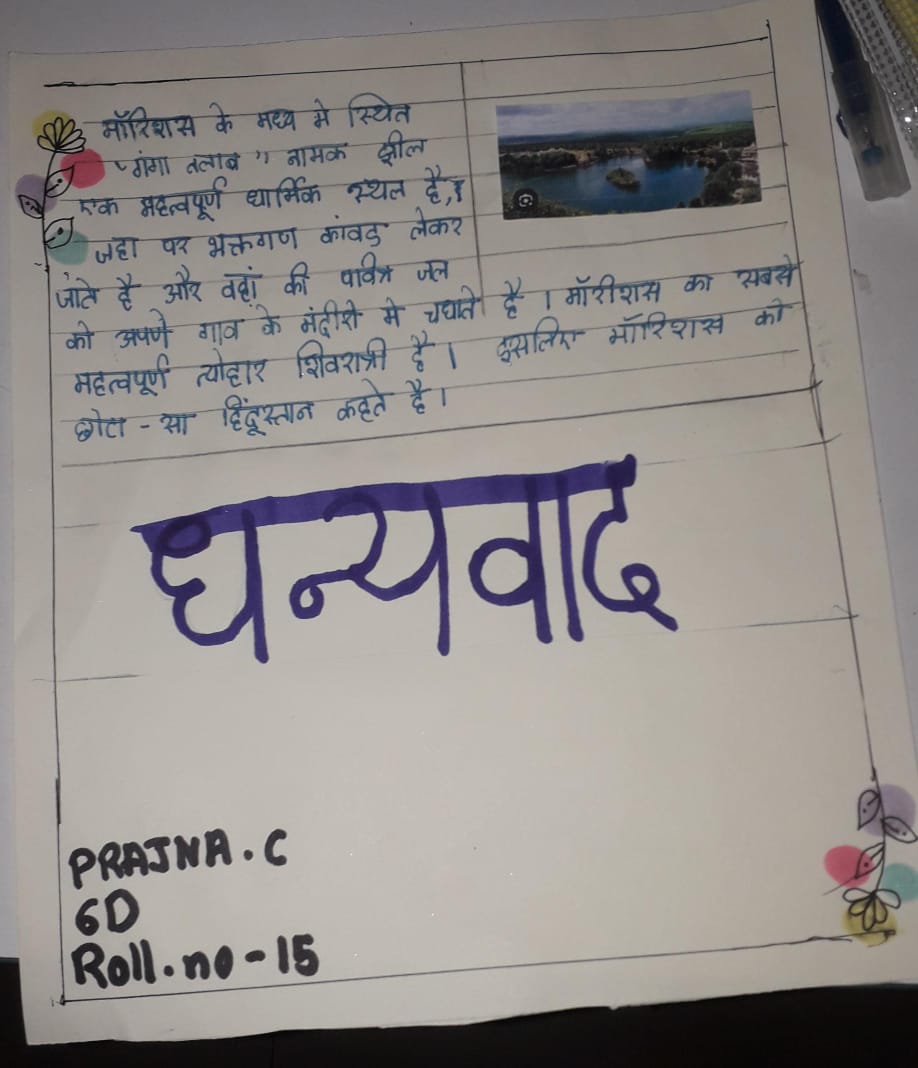 मॉरिशस के मध्य मे स्थित
"गंगा तलाब" नामक झील
एक महत्वपूर्ण धार्मिक स्थल है,
जहा पर भक्तगण कांवड़ लेकर
जाते है और वहां की पवित्र जल
को अपणे गाव के मंदीरो मे चघाते है । मॉरीशस का सबसे
महत्वपूर्ण त्योहार शिवरात्री है । इसलिए मॉरिशस को
छोटा - सा हिंदूस्तान कहते है ।
धन्यवाद
PRAJNA . C
6D
Roll . no - 15